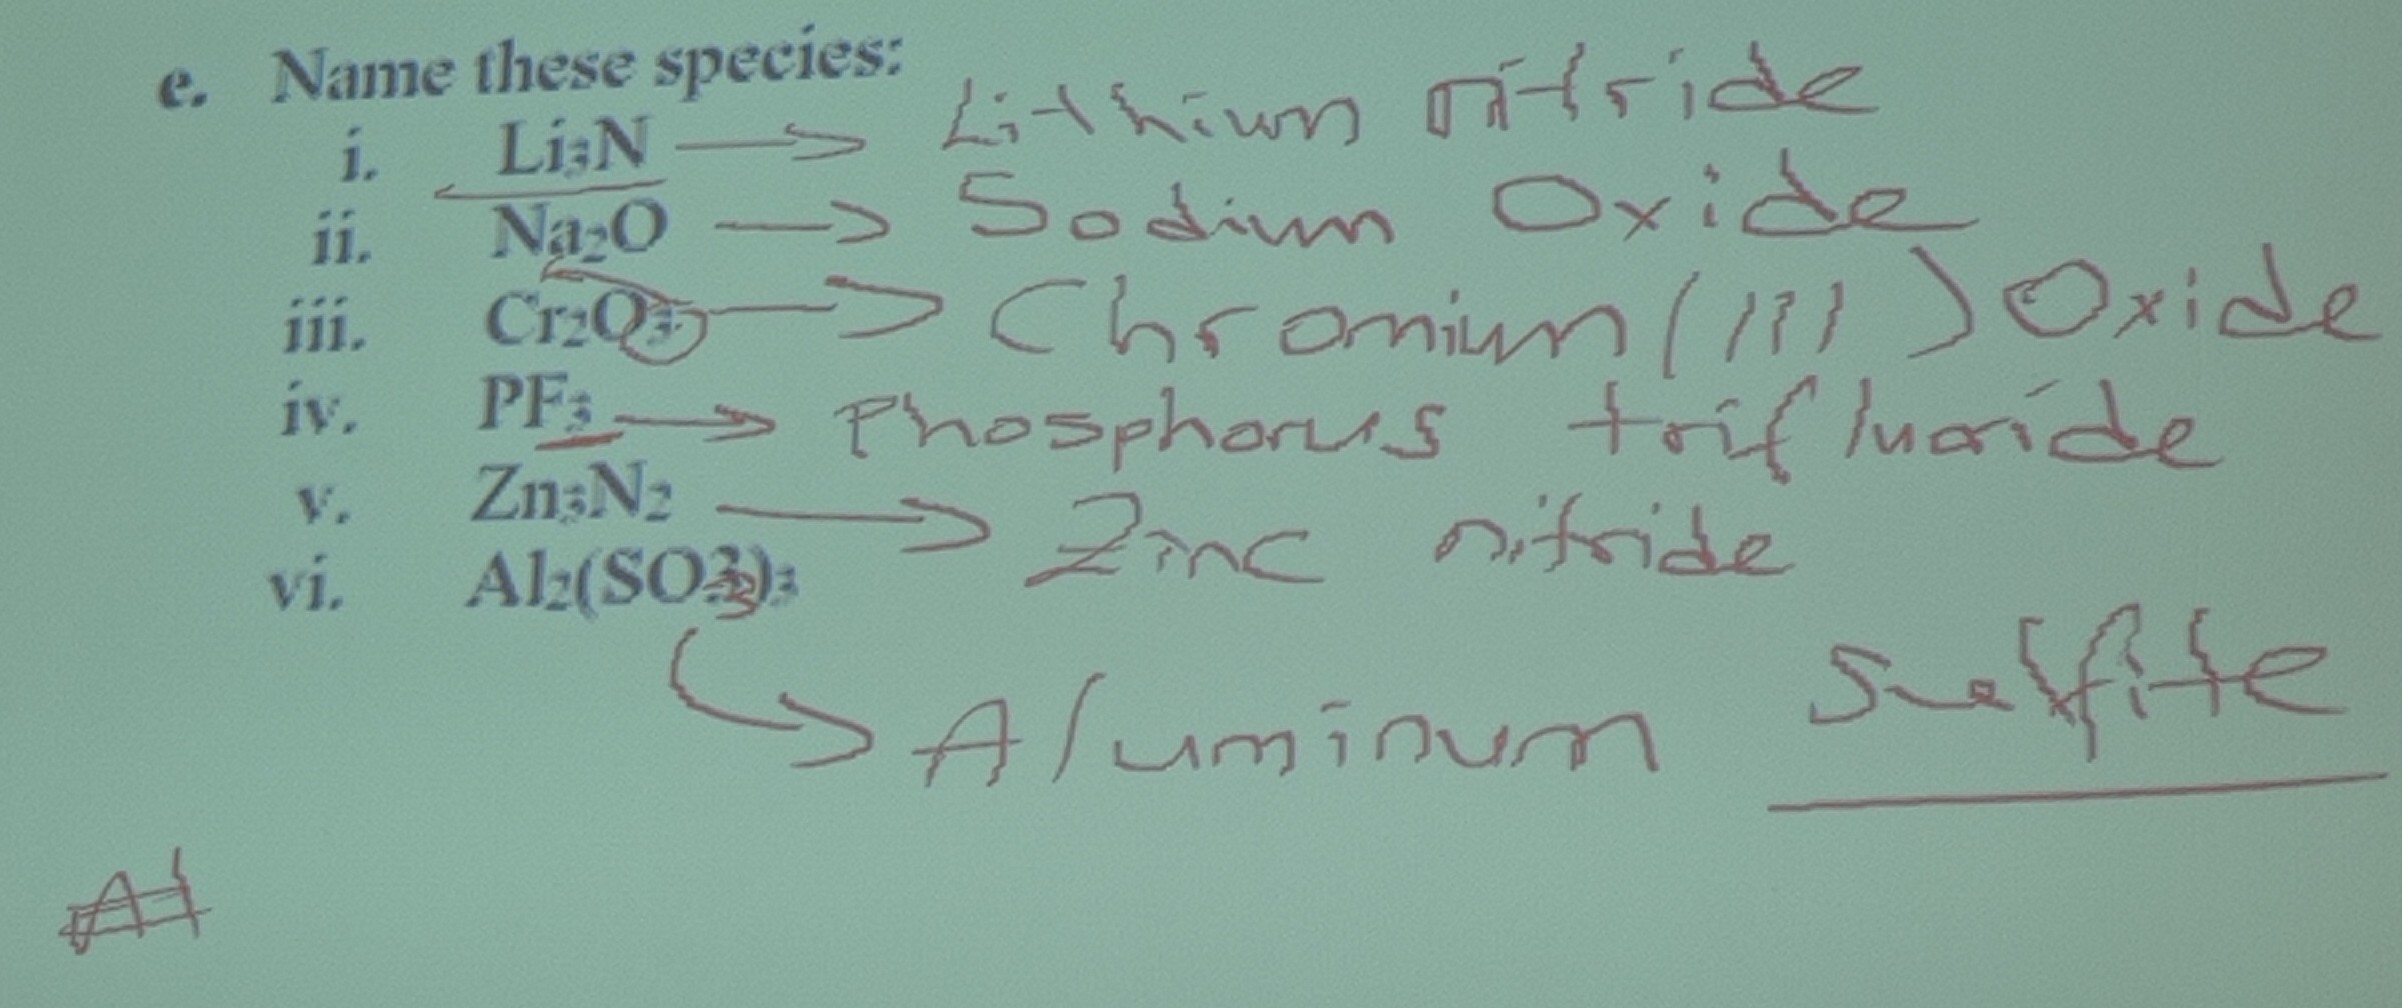 e. Name these species:
i. Li₃N → Lithium nitride
ii. Na₂O → Sodium Oxide
iii. Cr₂O₃ → Chromium (III) Oxide
iv. PF₃ → Phosphorus trifluoride
v. Zn₃N₂ → Zinc nitride
vi. Al₂(SO₃)₃
→ Aluminum sulfite